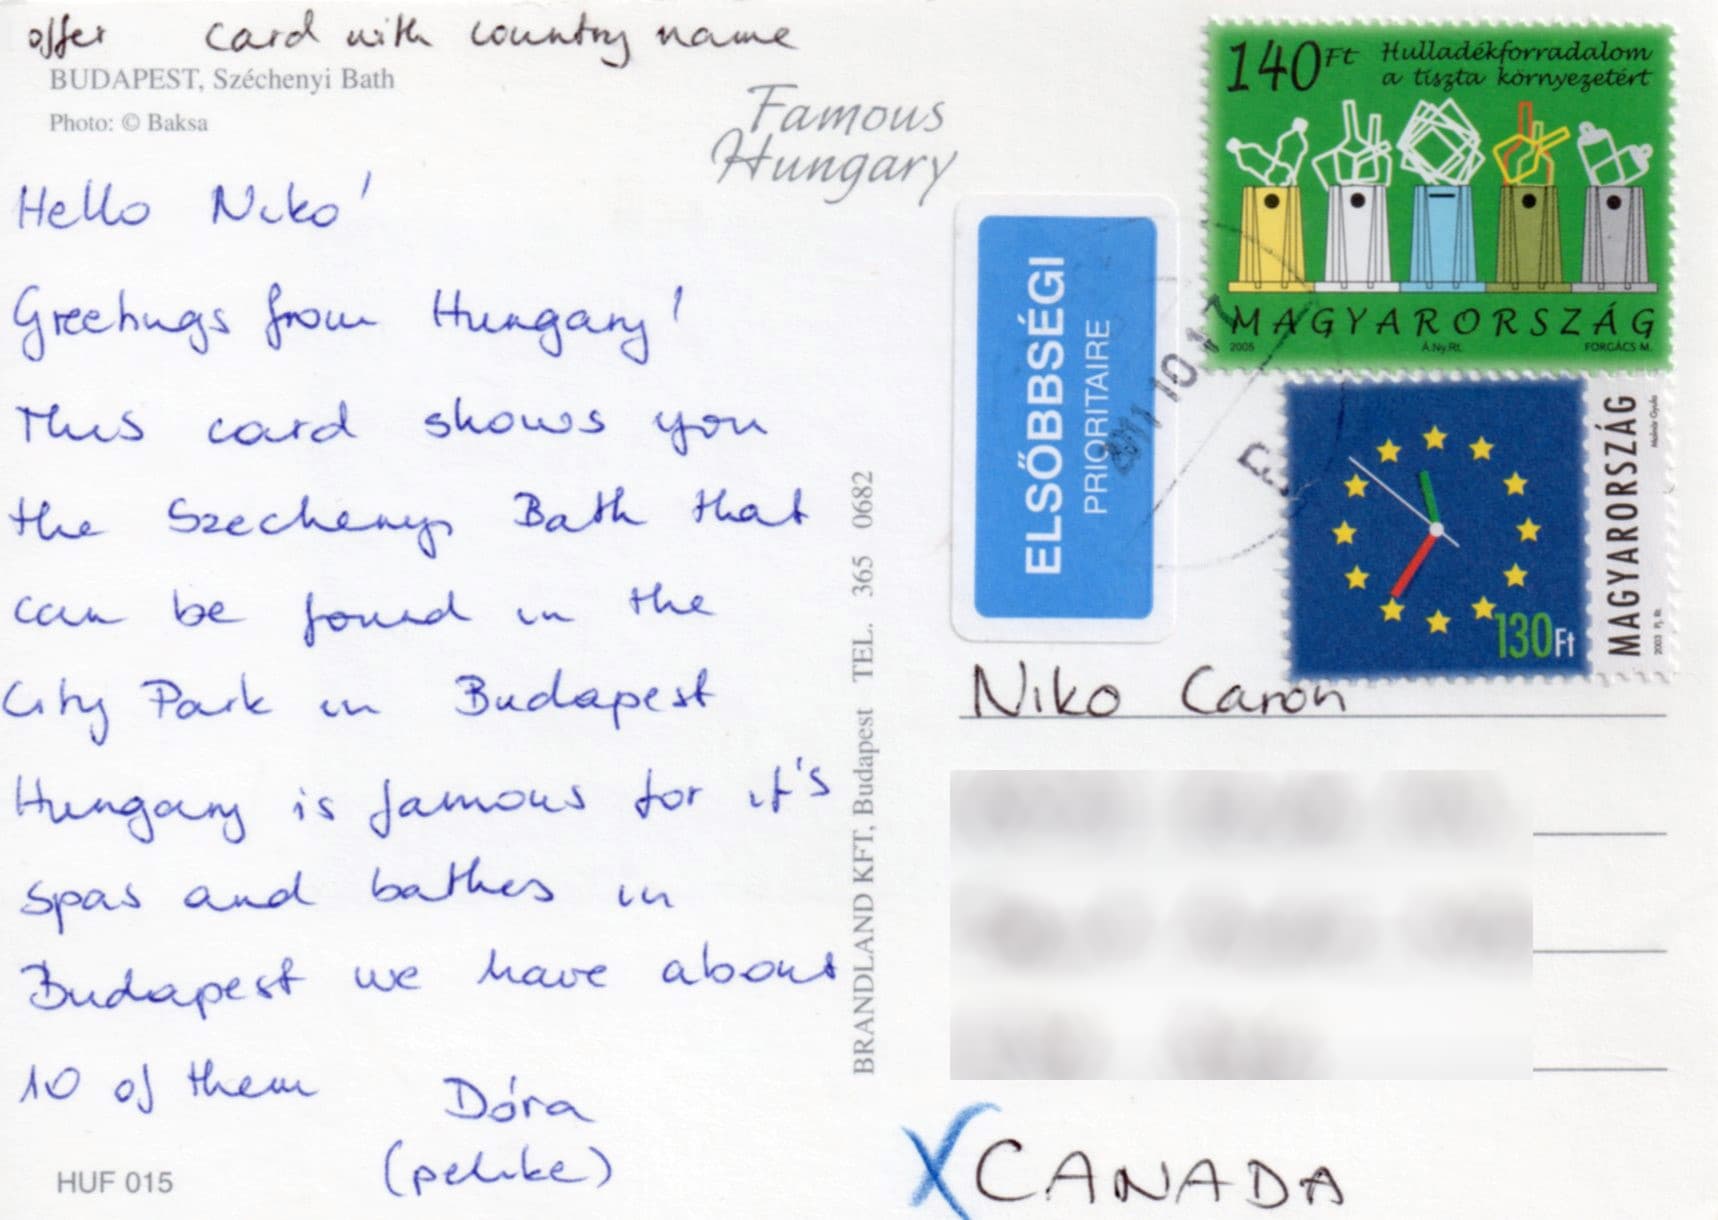 offer card with country name
BUDAPEST, Széchenyi Bath
Photo: © Baksa
Famous
Hungary
Hello Niko!
Greetings from Hungary!
This card shows you
the Szechenyi Bath that
can be found in the
City Park in Budapest
Hungary is famous for it's
spas and bathes in
Budapest we have about
10 of them Dóra
(pelike)
HUF 015
BRANDLAND KFT, Budapest TEL. 365 0682
ELSŐBBSÉGI
PRIORITAIRE
2011 10.17
140Ft Hulladékforradalom
a tiszta környezetért
MAGYARORSZÁG
2005 Á.Ny.Rt. FORGÁCS M.
MAGYARORSZÁG
Molnár Gyula
2003 Pj. Rt.
130Ft
Niko Caron
X CANADA